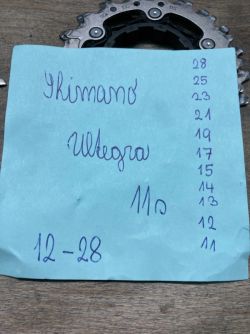 Shimano
Ultegra
11s
12-28
28
25
23
21
19
17
15
14
13
12
11